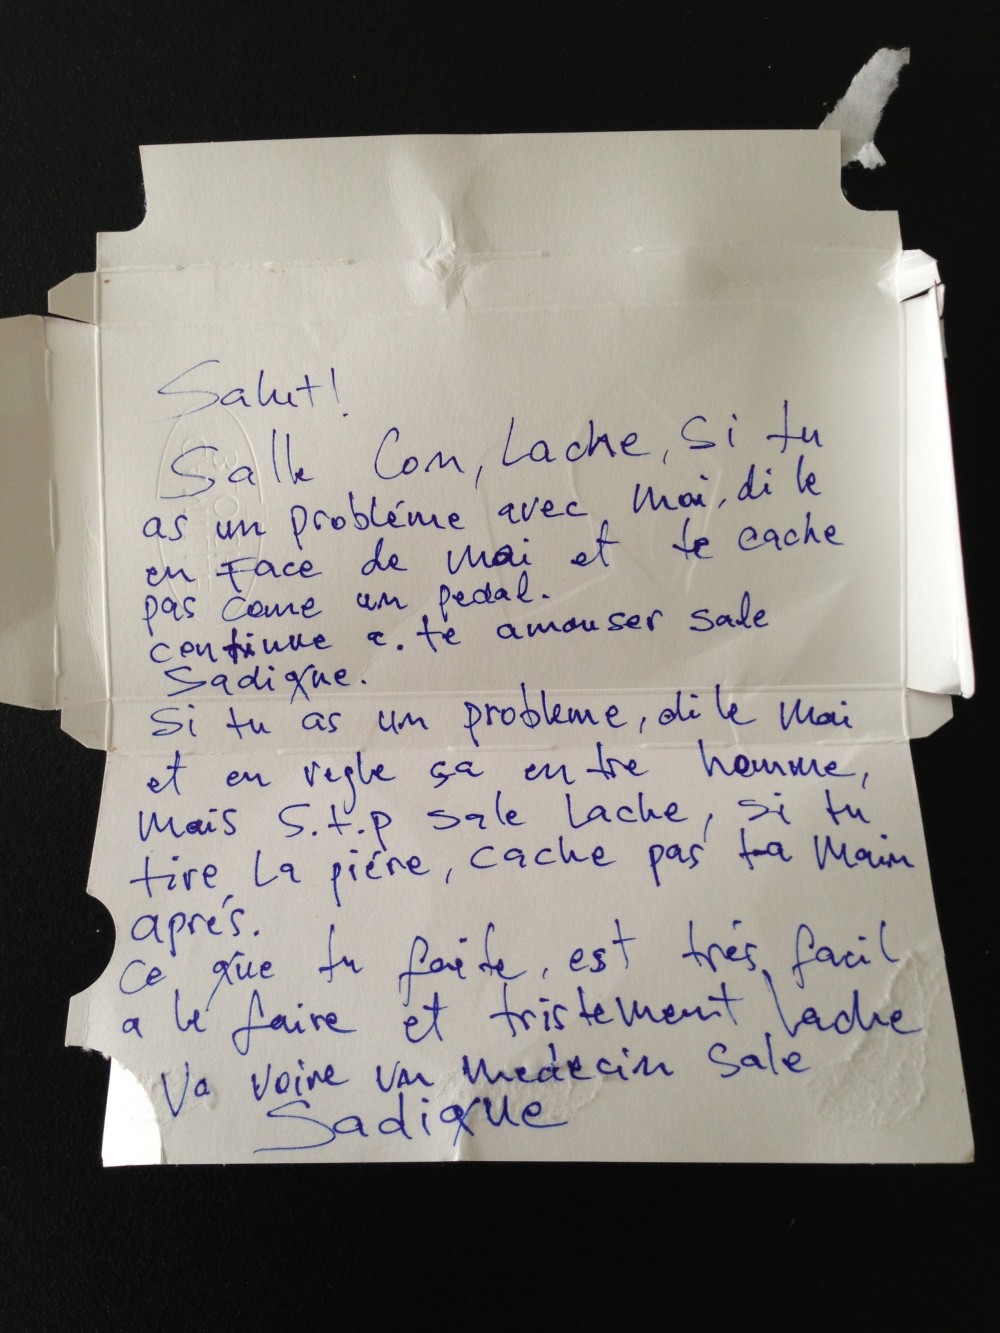 Salut!
Salle Con, Lache, Si tu
as un probléme avec moi, di le
en Face de moi et te cache
pas come un pedal.
continue a. te amouser sale
Sadique.
Si tu as un probleme, di le moi
et en regle ça entre homme,
mais S.t.p sale Lache, si tu
tire La piére, cache pas ta Main
aprés.
Ce que tu faite, est trés facil
a le faire et tristement lache
Va voire un medecin Sale
Sadique